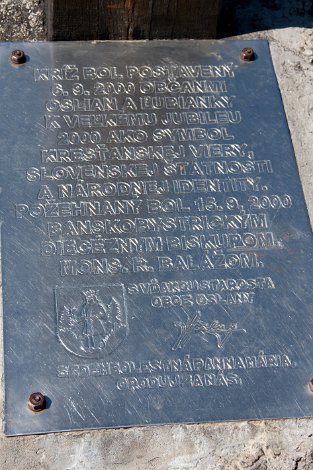 KRÍŽ BOL POSTAVENÝ
6. 9. 2000 OBČANMI
OSLIAN A ĽUBIANKY
K VEĽKÉMU JUBILEU
2000 AKO SYMBOL
KRESŤANSKEJ VIERY,
SLOVENSKEJ ŠTÁTNOSTI
A NÁRODNEJ IDENTITY.
POŽEHNANÝ BOL 15. 9. 2000
BANSKOBYSTRICKÝM
DIECÉZNYM BISKUPOM,
MONS. R. BALÁŽOM.
STAROSTA
OBCE OSLANY
SEDEMBOLESTNÁ PANNA MÁRIA,
ORODUJ ZA NÁS